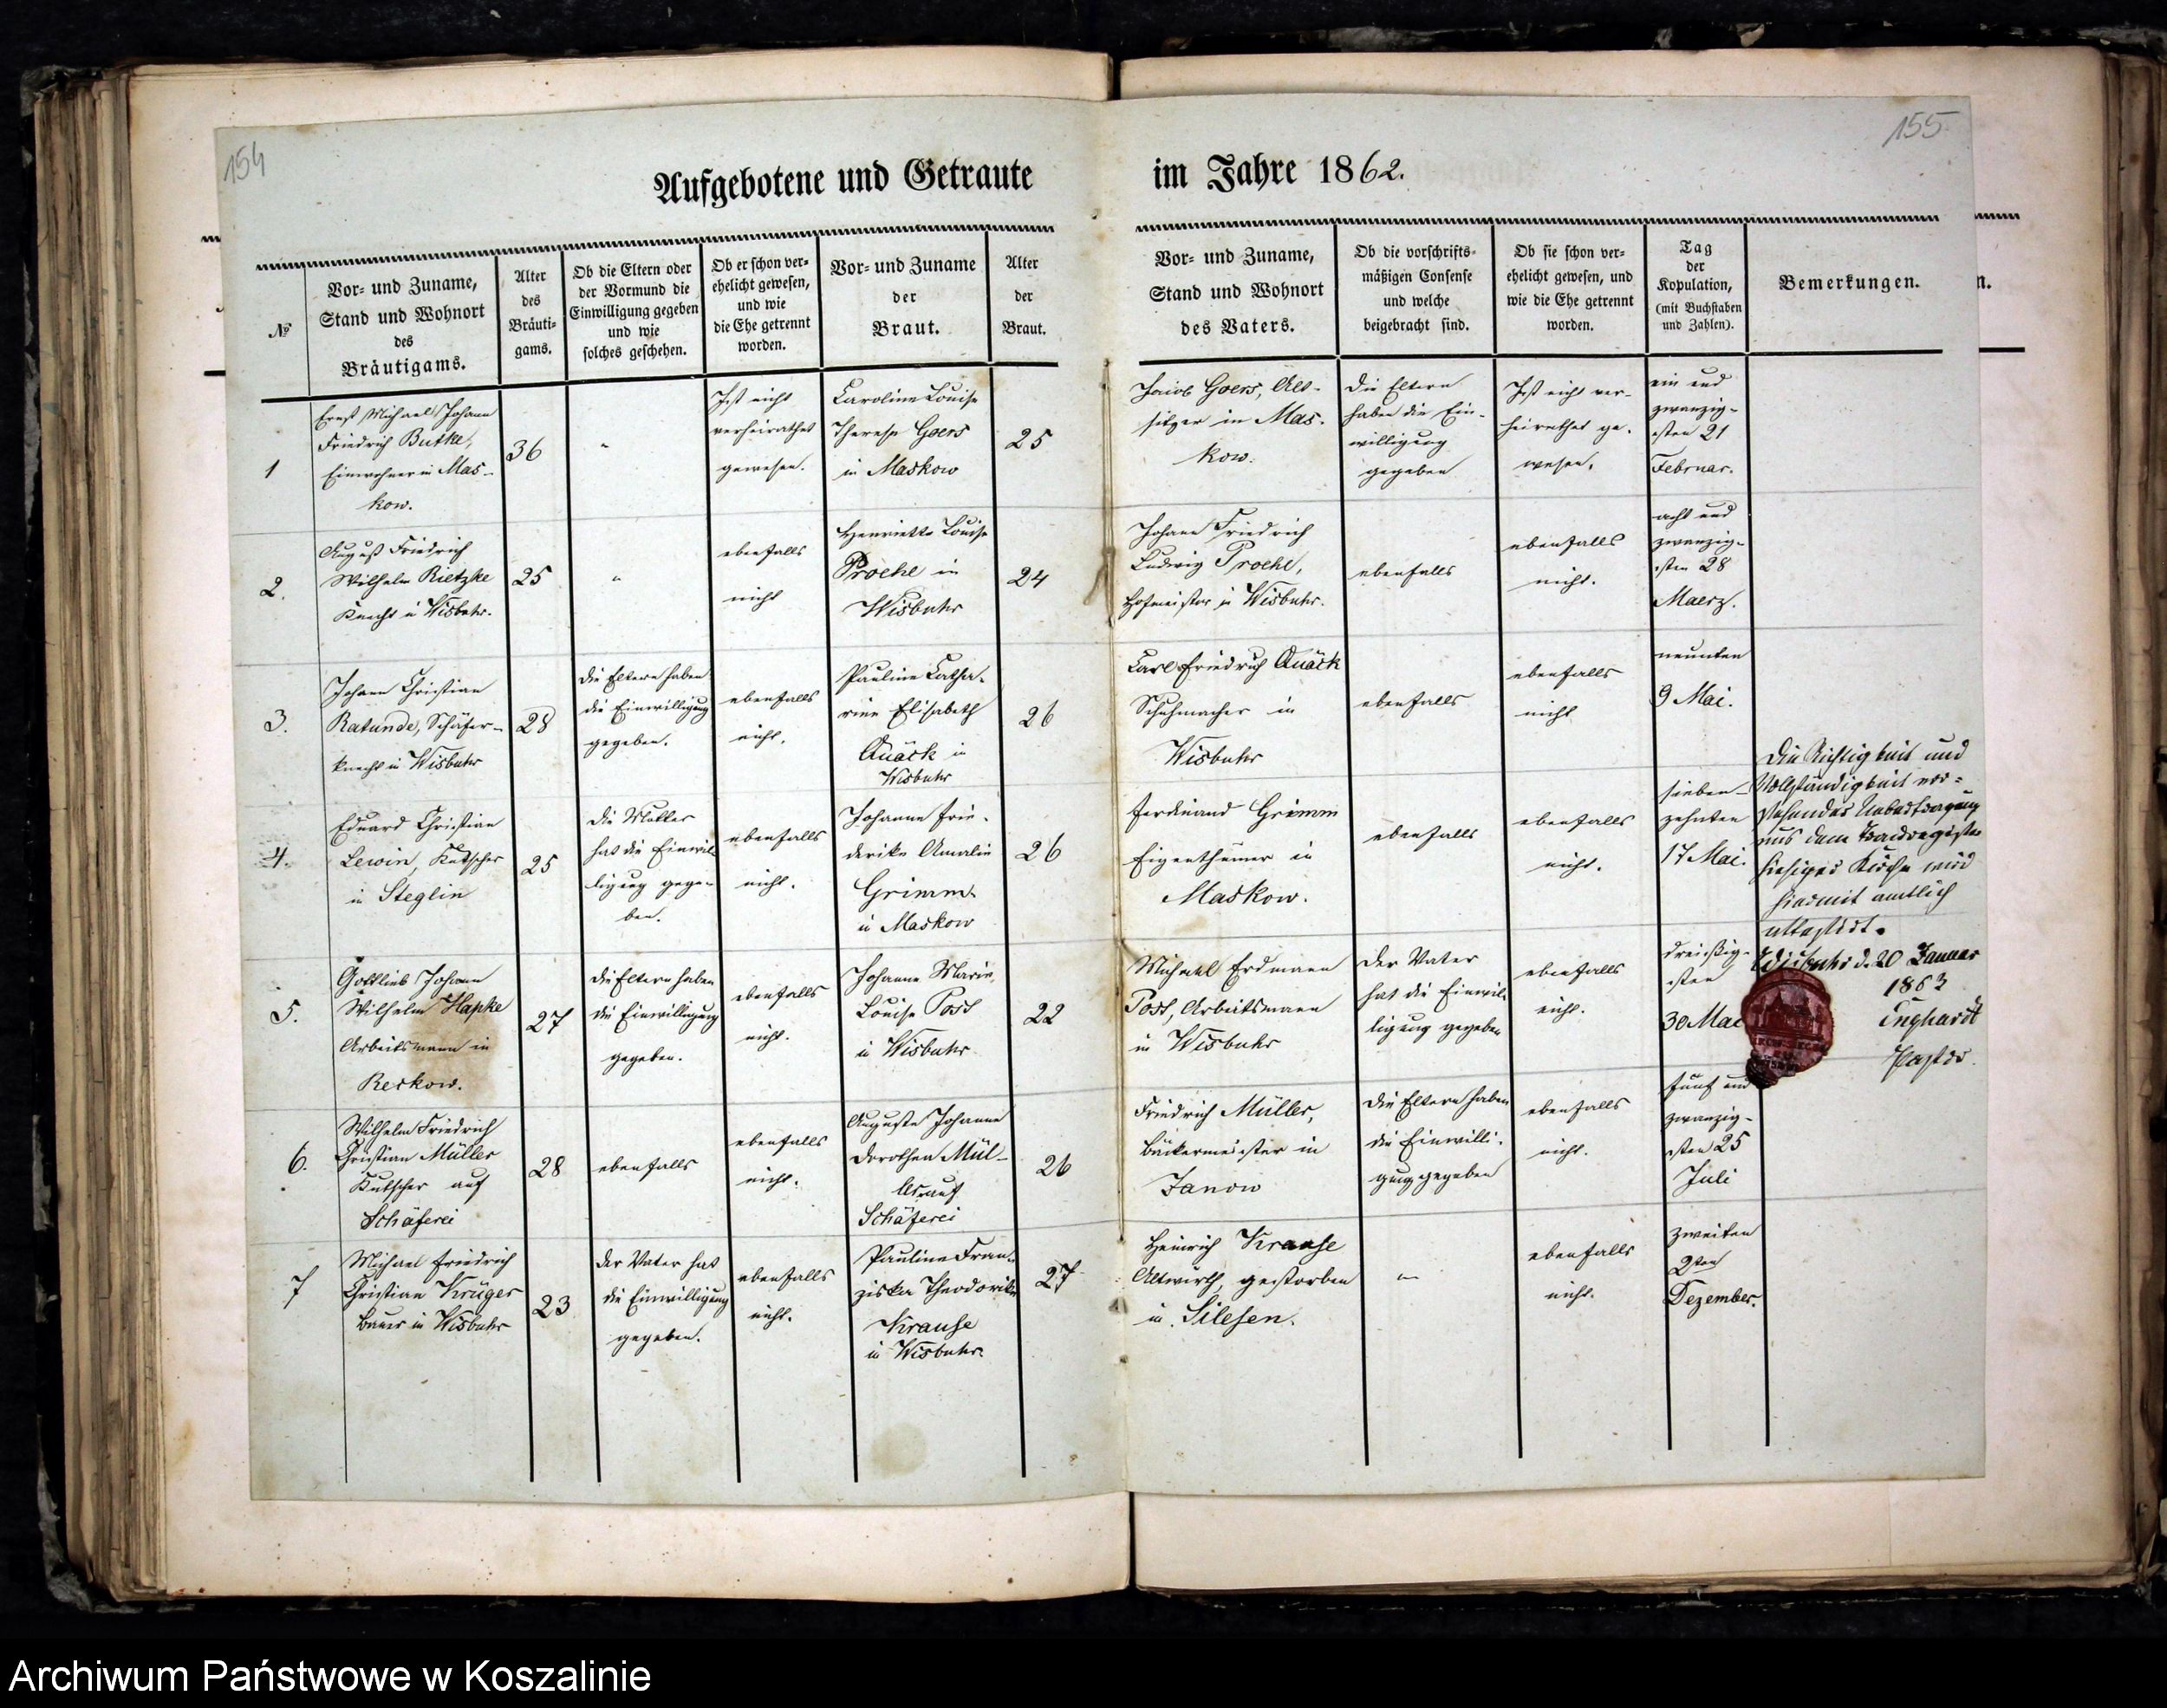 154
155
Aufgebotene und Getraute
im Jahre 1862.
№
Vor- und Zuname,
Stand und Wohnort
des
Bräutigams.
Alter
des
Bräuti-
gams.
Ob die Eltern oder
der Vormund die
Einwilligung gegeben
und wie
solches geschehen.
Ob er schon ver-
ehelicht gewesen,
und wie
die Ehe getrennt
worden.
Vor- und Zuname
der
Braut.
Alter
der
Braut.
Vor- und Zuname,
Stand und Wohnort
des Vaters.
Ob die vorschrifts-
mäßigen Consense
und welche
beigebracht sind.
Ob sie schon ver-
ehelicht gewesen, und
wie die Ehe getrennt
worden.
Tag
der
Kopulation,
(mit Buchstaben
und Zahlen).
Bemerkungen.
n.
1
Ernst Michael Johann
Friedrich Butke,
Einwohner in Mas-
kow.
36
"
Ist nicht
verheirathet
gewesen.
Caroline Louise
Therese Goers
in Maskow
25
Jacob Goers, Alt-
sitzer in Mas-
kow.
Die Eltern
haben die Ein-
willigung
gegeben
Ist nicht ver-
heirathet ge-
wesen.
ein und
zwanzig-
sten 21
Februar.
2.
August Friedrich
Wilhelm Rietzke
Knecht in Wisbuhr.
25
"
ebenfalls
nicht
Henriette Louise
Proehl in
Wisbuhr
24
Johann Friedrich
Ludwig Proehl,
Hofmeister in Wisbuhr.
ebenfalls
ebenfalls
nicht.
acht und
zwanzig-
sten 28
Maerz.
3.
Johann Christian
Ratunde, Schäfer-
knecht in Wisbuhr
28
Die Eltern haben
die Einwilligung
gegeben.
ebenfalls
nicht.
Pauline Catha-
rine Elisabeth
Quäck in
Wisbuhr
26
Carl Friedrich Quäck
Schuhmacher in
Wisbuhr
ebenfalls
ebenfalls
nicht
neunten
9 Mai.
4.
Eduard Christian
Lewin, Kutscher
in Steglin
25
Die Mutter
hat die Einwil-
ligung gege-
ben.
ebenfalls
nicht.
Johanne Frie-
derike Amalie
Grimm
in Maskow
26
Ferdinand Grimm
Eigenthümer in
Maskow.
ebenfalls
ebenfalls
nicht.
sieben-
zehnten
17 Mai.
5.
Gottlieb Johann
Wilhelm Hapke
Arbeitsmann in
Reckow.
27
Die Eltern haben
die Einwilligung
gegeben.
ebenfalls
nicht.
Johanne Marie
Louise Poss
in Wisbuhr
22
Michael Erdmann
Poss, Arbeitsmann
in Wisbuhr
Der Vater
hat die Einwil-
ligung gegeben
ebenfalls
nicht.
dreißig-
sten
30 Mai
6.
Wilhelm Friedrich
Christian Müller
Kutscher auf
Schäferei
28
ebenfalls
ebenfalls
nicht.
Auguste Johanne
Dorothea Mül-
ler auf
Schäferei
26
Friedrich Müller,
Bäckermeister in
Zanow
Die Eltern haben
die Einwilli-
gung gegeben
ebenfalls
nicht.
fünf und
zwanzig-
sten 25
Juli
7
Michael Friedrich
Christian Krüger
Bauer in Wisbuhr
23
Der Vater hat
die Einwilligung
gegeben.
ebenfalls
nicht.
Pauline Fran-
ziska Theodorike
Krause
in Wisbuhr.
27
Heinrich Krause
Altwirth, gestorben
in Silesen.
—
ebenfalls
nicht.
zweiten
2ten
Dezember.
Die Richtigkeit und
Vollständigkeit vor-
stehender Uebertragung
aus dem Trauregister
hiesiger Kirche wird
hiermit amtlich
attestirt.
Wisbuhr d. 20 Januar
1863
Pastor
Archiwum Państwowe w Koszalinie